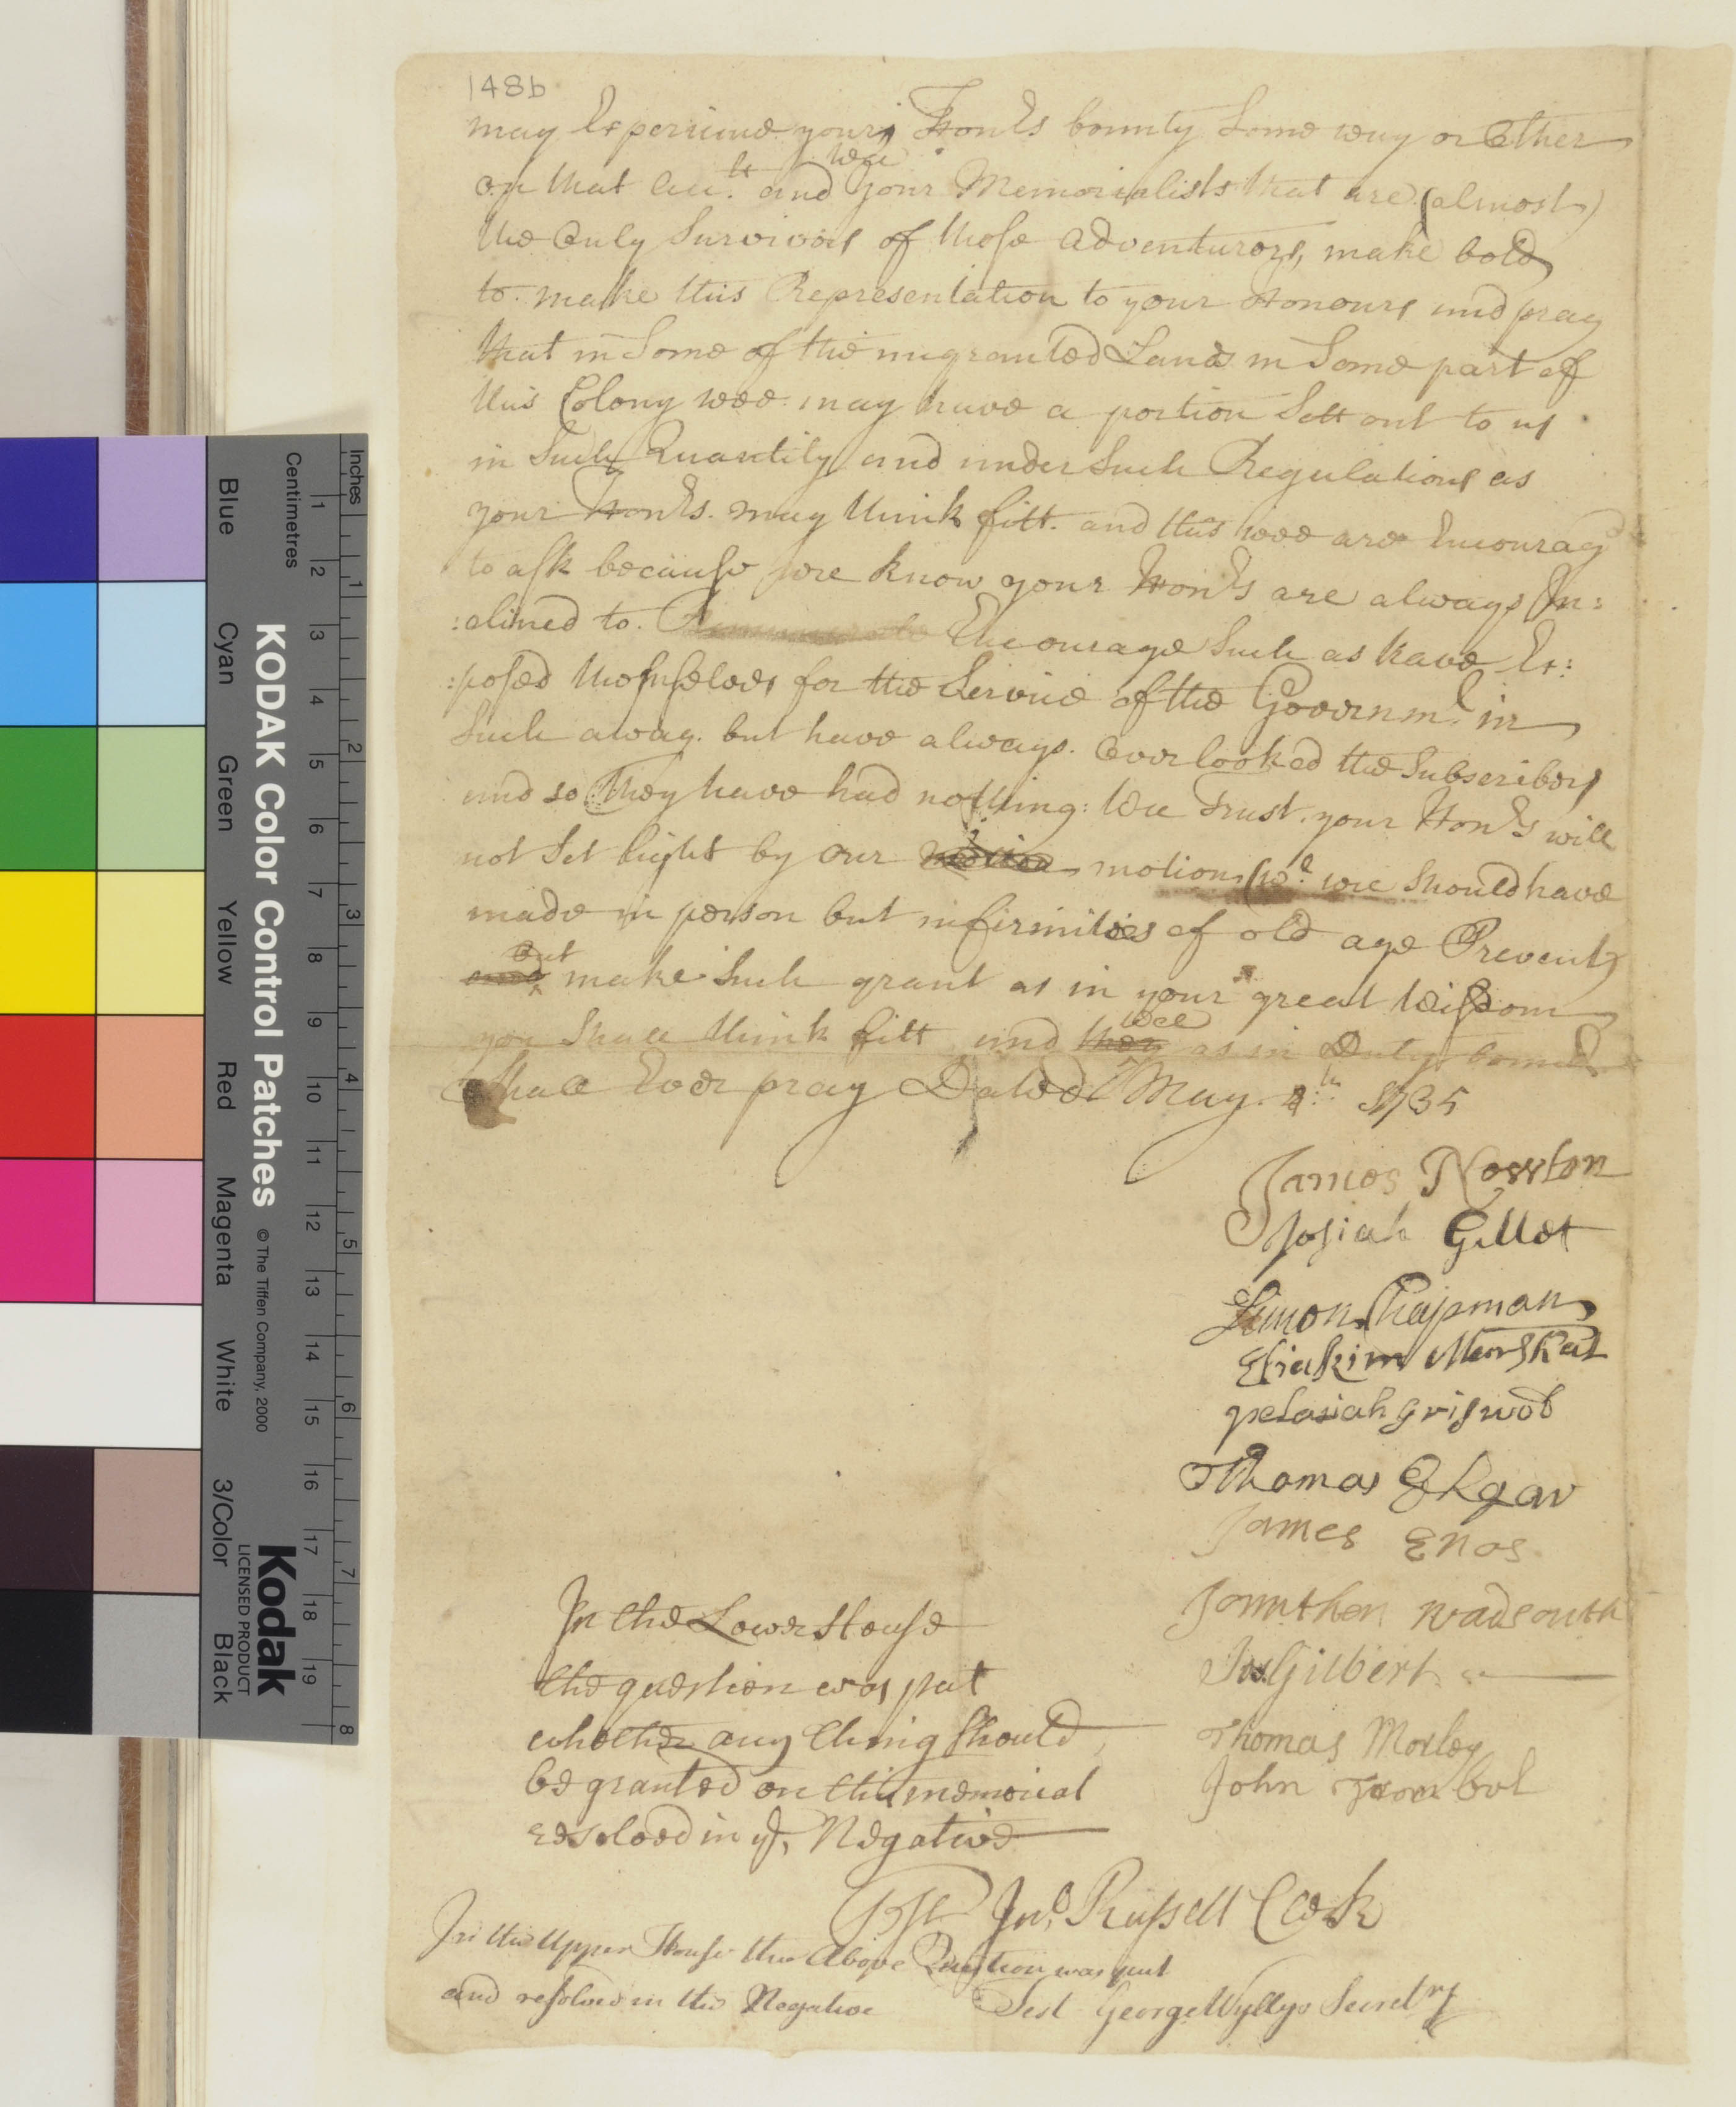 148b
may Experience your Honrs bounty Some way or Other
on that acctt. and wee your Memorialists that are (almost)
the Only Survivors of those Adventurors, make bold
to make this Representation to your Honours and pray
that in Some of the ungranted Lands in Some part of
this Colony wee may have a portion Sett out to us
in Such Quantity and under Such Regulations as
your Honrs. may think fitt. and this wee are Encouragd
to ask because wee know your Honrs are always In:
:clined to Encourage Such as have Ex:
:posed themselves for the Service of the Governmt. in
Such a way. but have always. Overlooked the Subscribers
and so they have had nothing: Wee Trust your Honrs will
not Set light by our motion (wch. wee should have
made in person but infirmities of old age Prevent)
and But make Such grant as in your great Wisdom
you Shall think fitt and they wee as in Duty bound
Shall Ever pray Dated May th 1735
James Nosston
Josiah Gillet
Simon Chapman
Eliakim Marshal
pelatiah Griswold
Thomas Elgar
James Enos
Jonnthen wadsouth
Jos. Gilbert
Thomas Morley
John Trombol
In the Lower House
the question was put
whether any thing should
be granted on this memorial
resolved in ye. Negative
Test Jno. Russell Clerk
In the Upper House the Above Question was put
and resolved in the Negative
Test George Wyllys Secretry
KODAK Color Control Patches
© The Tiffen Company, 2000
Kodak
LICENSED PRODUCT
Blue Cyan Green Yellow Red Magenta White 3/Color Black
Centimetres
1 2 3 4 5 6 7 8 9 10 11 12 13 14 15 16 17 18 19
Inches
1 2 3 4 5 6 7 8